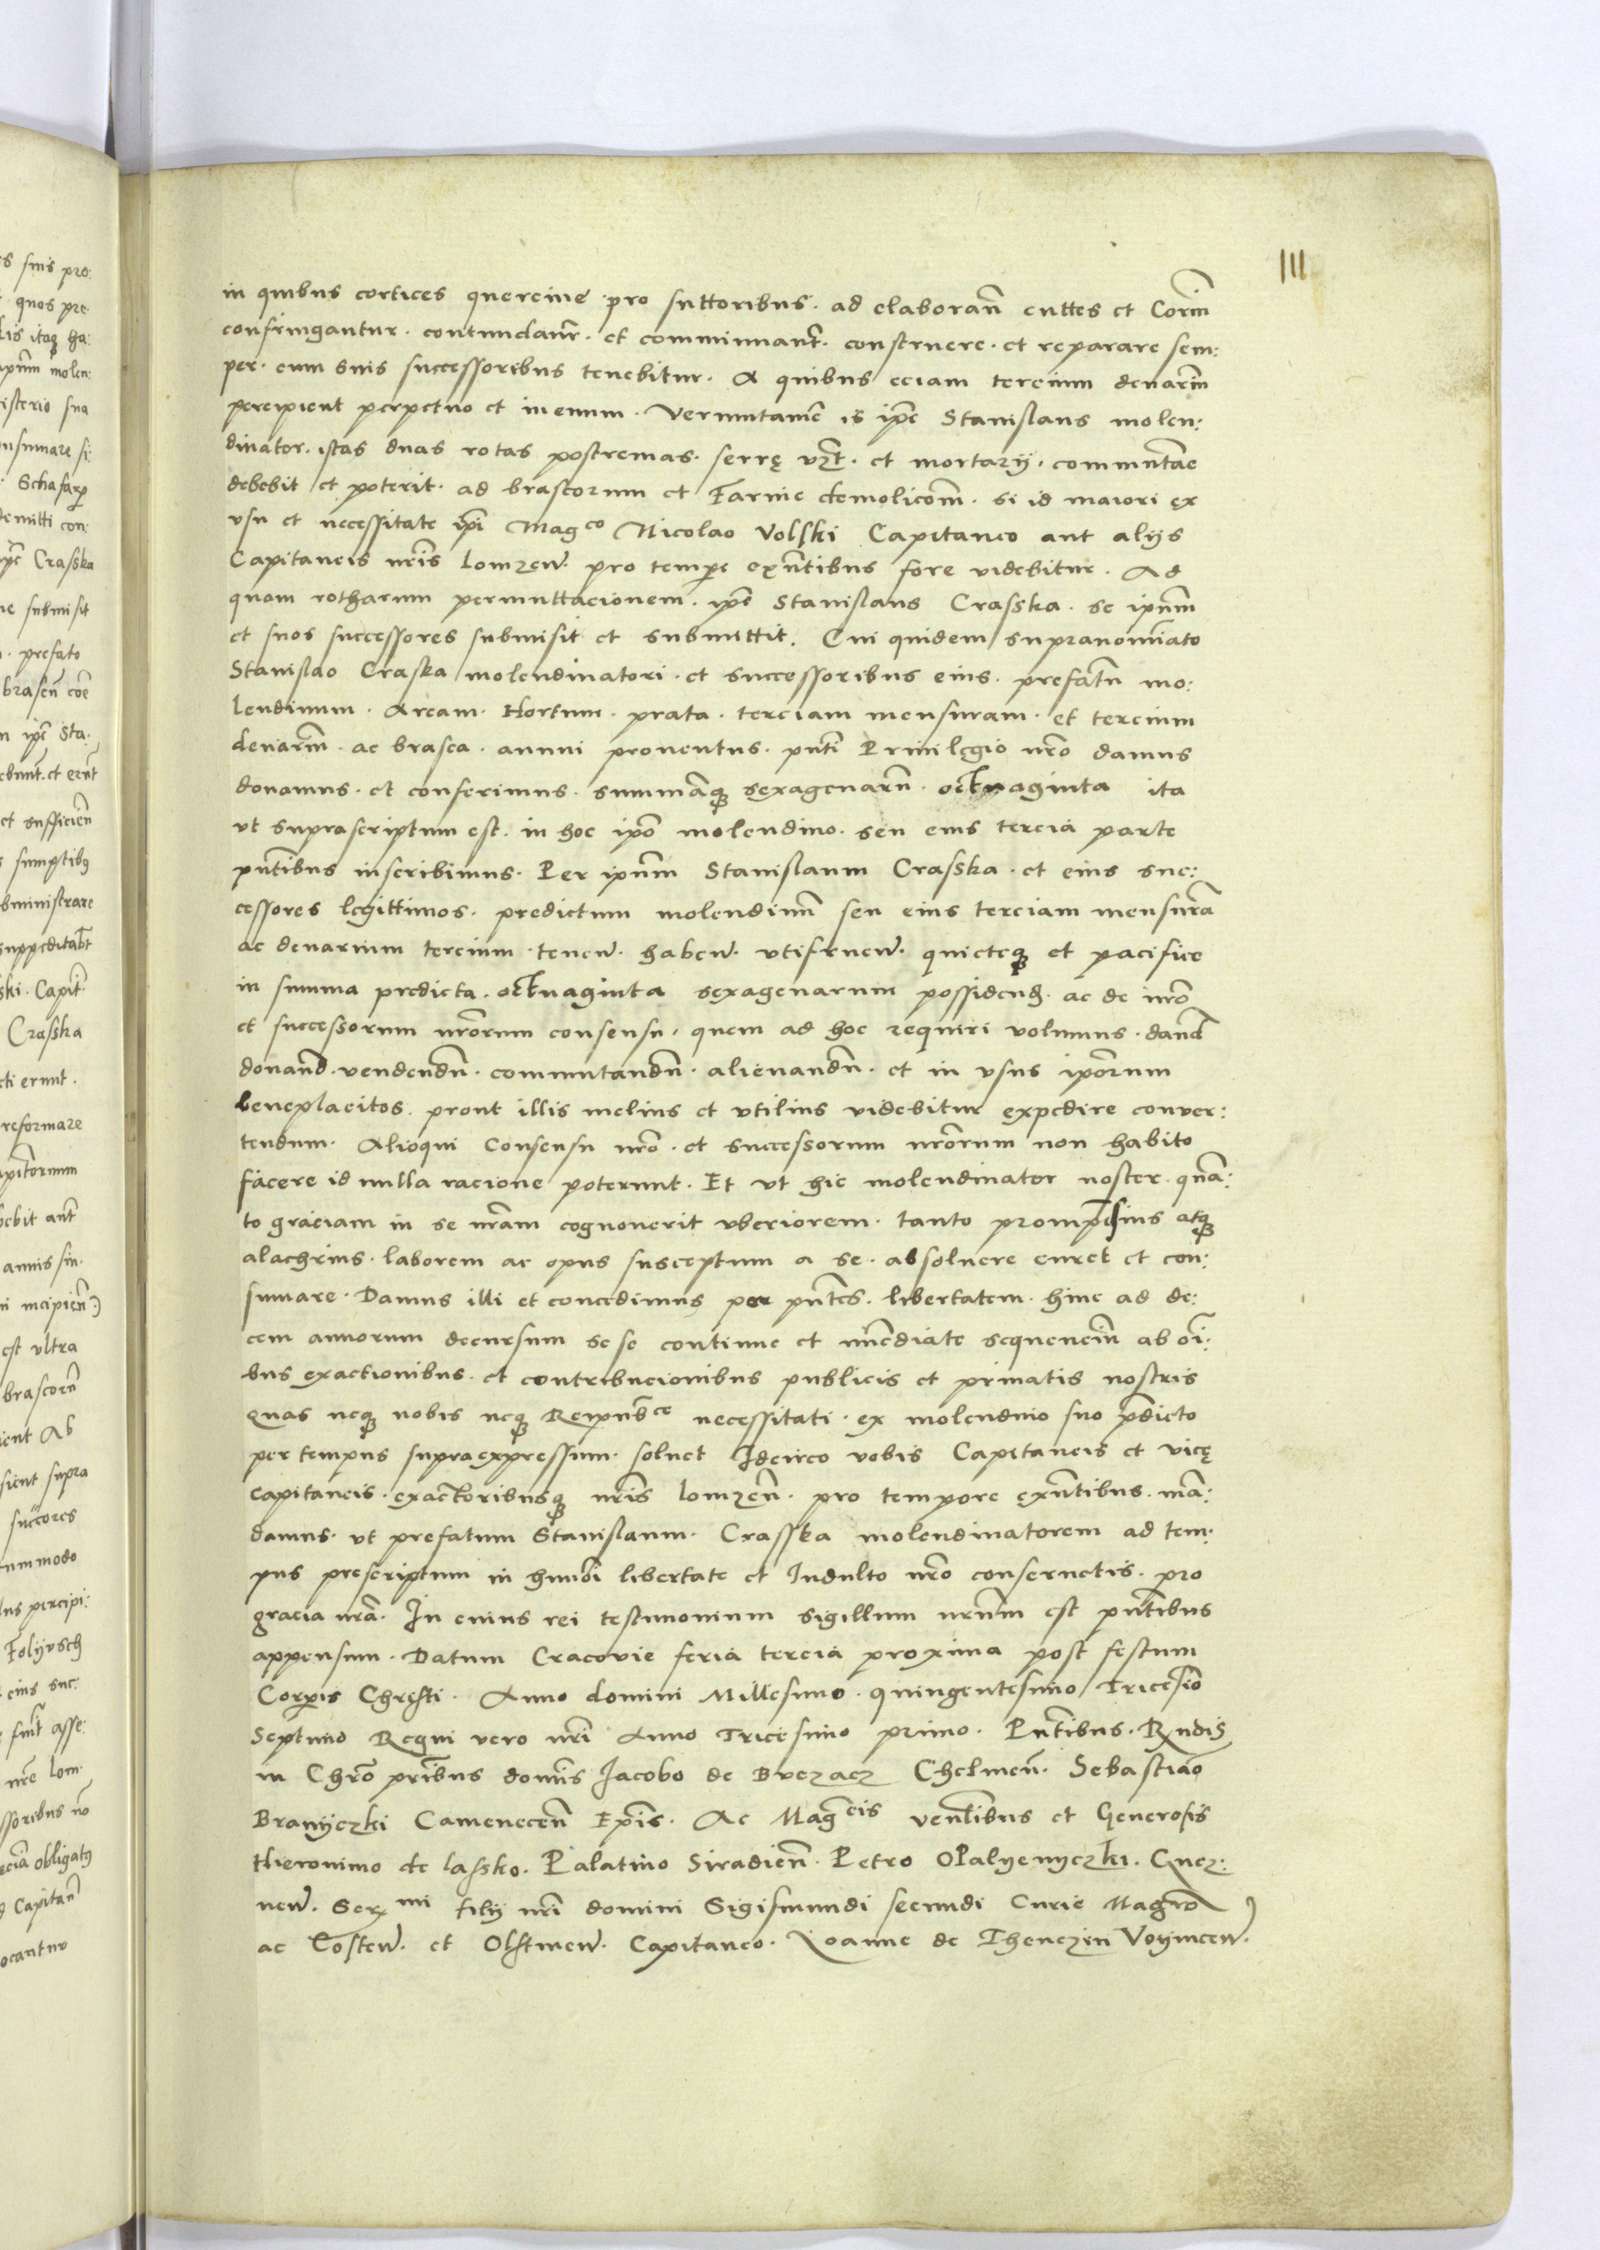 111
in quibus cortices querciné pro suttoribus. ad elaborañ cuttes et Corim̄
confringantur. contundant̄r. et comminuant̄. construere. et reparare sem:
per. cum suis successoribus tenebitur. A quibus eciam tercium denarim̄
percipient perpetuo et in euum. Verumtamē is ip̄e Stanislaus molen:
dinator. istas duas rotas postremas. serrę vzt. et mortarÿ. commutāe
debebit et poterit. ad brascorum et Farine demolicōm. si id maiori ex
vsu et necessitate ip̄i Magco Nicolao Volski Capitaneo aut alÿs
Capitaneis nr̄is Lomzeñ. pro tempe exn̄tibus fore videbitur. Ad
quam rotharum permuttacionem. ip̄e Stanislaus Crasska. se ipm̄
et suos successores submisit et submittit. Cui quidem supranomīato
Stanislao Craska molendinatori. et successoribus eius. prefatū mo:
lendinum. Aream. Hortum. prata. terciam mensuram. et tercium
denarim̄. ac brasea. annui prouentus. pn̄ti Priuilegio nr̄o damus
donamus. et conferimus. summāqꝫ sexagenarū. octuaginta ita
vt suprascriptum est. in hoc ip̄o molendino. seu eius tercia parte
pn̄tibus inscribimus. Per ipm̄ Stanislaum Crasska. et eius suc:
cessores legittimos. predictum molendinū seu eius terciam mensurā
ac denarium tercium. teneñ. habeñ. vtifrueñ. quieteqꝫ et pacifice
in summa predicta. octuaginta sexagenarum possidend̄. ac de nr̄o
et successorum nr̄orum consensu. quem ad hoc requiri volumus. dand̄
donand̄. vendendū. commutandū. alienandū. et in vsus ip̄orum
beneplacitos. prout illis melius et vtilius videbitur expedire conuer:
tendum. Alioqui Consensu nr̄o. et successorum nr̄orum non habito
facere id nulla racione poterunt. Et vt hic molendinator noster. quā:
to graciam in se nr̄am cognouerit vberiorem. tanto prompcius atqꝫ
alachrius. laborem ac opus susceptum a se. absoluere curet et con:
sumare. Damus illi et concedimus per pn̄tes. libertatem. hinc ad de:
cem annorum decursum se se continue et im̄ediate sequencim̄ ab oī:
bus exactionibus. et contribucionibus publicis et priuatis nostris
quas neqꝫ nobis neqꝫ Reipubce necessitati. ex molendino suo p̄dicto
per tempus supraexpressum. soluet Idcirco vobis Capitaneis et vicę
capitaneis. exactoribusqꝫ nr̄is Lomzeñ. pro tempore exn̄tibus. mā:
damus. vt prefatum Stanislaum. Crasska molendinatorem ad tem:
pus prescriptum in humōi libertate et Indulto nr̄o conseruetis. pro
gracia nr̄a. In cuius rei testimonium sigillum nr̄um est pn̄tibus
appensum. Datum Cracovie feria tercia proxima post festum
Corpis Christi. Anno domini Millesimo. quingentesimo Tricesīo
Septimo Regni vero nr̄i Anno Tricesimo primo. Pn̄tibus. Rndis
in Chr̄o pr̄ibus dom̄is Jacobo de Bvczacz Chelmeñ. Sebastiāo
Branÿczki Cameneceñ Ep̄is. Ac Magcis ven̄tibus et Generosis
Hieronimo de Lassko. Palatino Siradieñ. Petro OPalyenyczki. Gnez:
neñ. Sermi filÿ nr̄i domini Sigismundi secundi Curie Magr̄o
ac Costeñ. et Olstineñ. Capitaneo. Joanne de Thenczin Voÿniceñ.